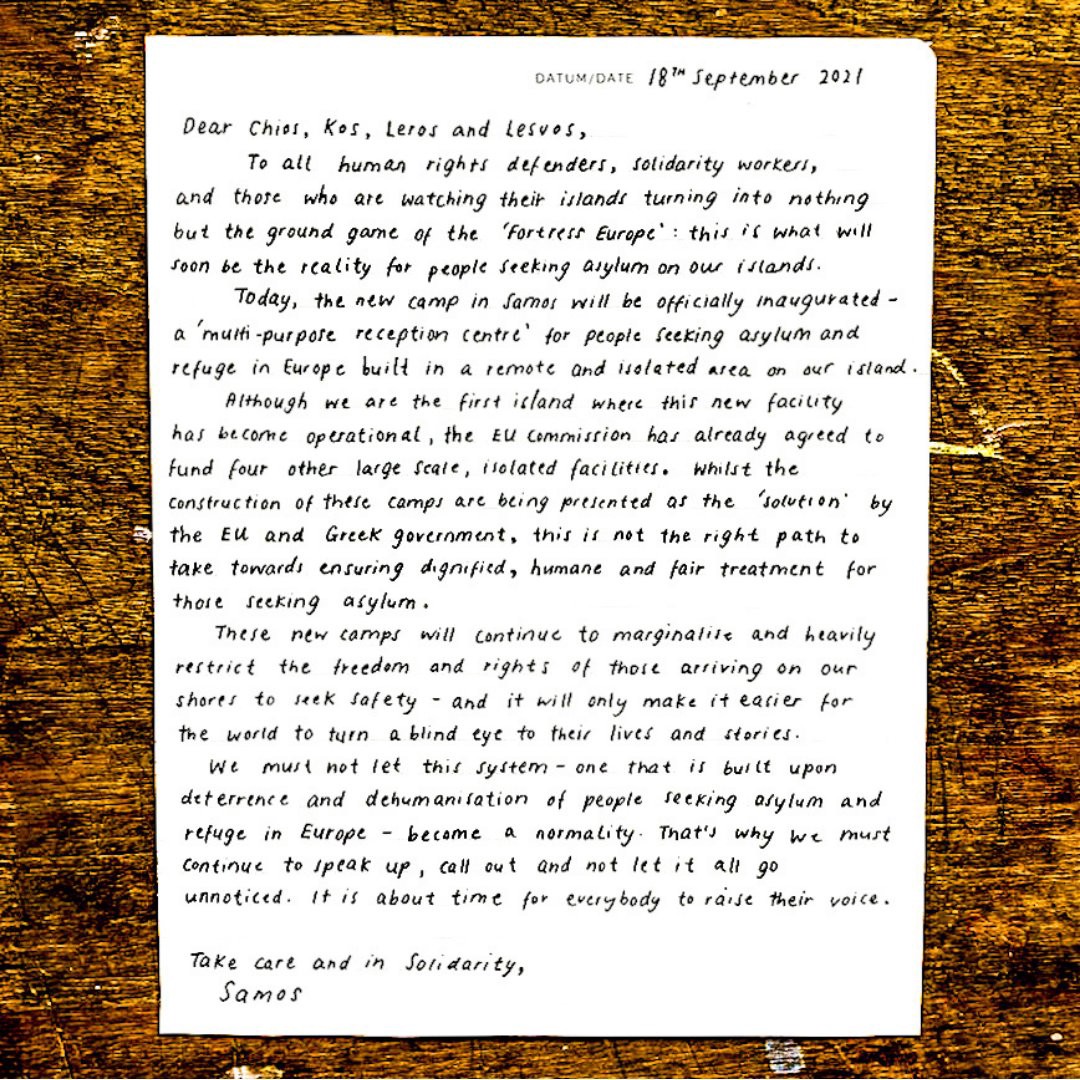 DATUM/DATE 18TH September 2021
Dear Chios, Kos, Leros and Lesvos,
To all human rights defenders, solidarity workers,
and those who are watching their islands turning into nothing
but the ground game of the 'Fortress Europe': this is what will
soon be the reality for people seeking asylum on our islands.
Today, the new camp in Samos will be officially inaugurated -
a 'multi-purpose reception centre' for people seeking asylum and
refuge in Europe built in a remote and isolated area on our island.
Although we are the first island where this new facility
has become operational, the EU Commission has already agreed to
fund four other large scale, isolated facilities. Whilst the
construction of these camps are being presented as the 'solution' by
the EU and Greek government, this is not the right path to
take towards ensuring dignified, humane and fair treatment for
those seeking asylum.
These new camps will continue to marginalise and heavily
restrict the freedom and rights of those arriving on our
shores to seek safety - and it will only make it easier for
the world to turn a blind eye to their lives and stories.
We must not let this system - one that is built upon
deterrence and dehumanisation of people seeking asylum and
refuge in Europe - become a normality. That's why we must
continue to speak up, call out and not let it all go
unnoticed. It is about time for everybody to raise their voice.
Take care and in Solidarity,
Samos